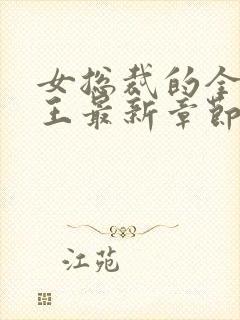 女总裁的全
王最新章节
江苑